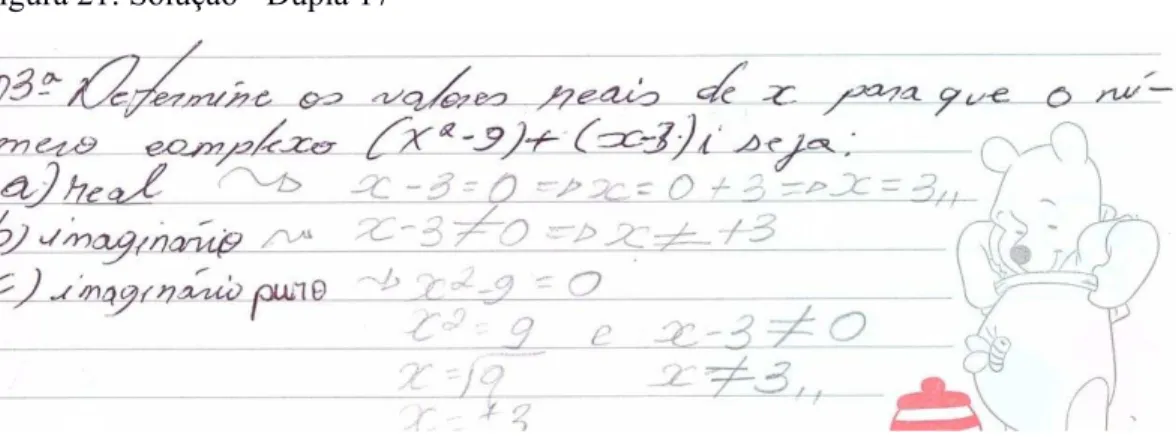 igura 21: Solução - Dupla 17
03ª Determine os valores reais de x para que o nú-
mero complexo (x²-9)+(x-3)i seja:
a) real ~> x-3=0 => x=0+3 => x=3,,
b) imaginário ~> x-3≠0 => x≠+3
c) imaginário puro ~> x²-9=0
x²=9 e x-3≠0
x=√9 x≠3,,
x=±3